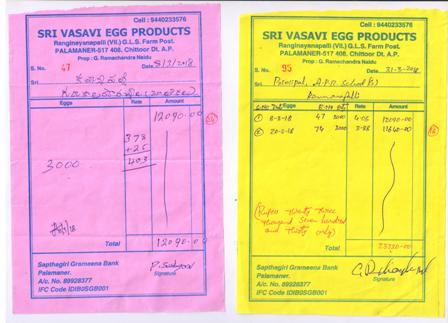 Cell : 9440233576
SRI VASAVI EGG PRODUCTS
Ranginayanapalli (Vil.) G.L.S. Farm Post.
PALAMANER-517 408. Chittoor Dt. A.P.
Prop : G. Ramachandra Naidu
S. No. 47 Date 8/3/2018
Sri
Eggs Rate Amount
12090-00
3.78
+ 25
4.03
3000
Total 12090-00
Sapthagiri Grameena Bank
Palamaner.
A/c. No. 89928377
IFC Code IDIB0SGB001
Signature
Cell : 9440233576
SRI VASAVI EGG PRODUCTS
Ranginayanapalli (Vil.) G.L.S. Farm Post.
PALAMANER-517 408. Chittoor Dt. A.P.
Prop : G. Ramachandra Naidu
S. No. 95 Date 31-3-2018
Sri Principal, A.P.R School
Eggs Rate Amount
① 8-3-18 47 3000 4.03 12090-00
② 74 3000 3-88 11640-00
(Rupees Twenty three
thousand Seven hundred
and thirty only)
Total 23730-00
Sapthagiri Grameena Bank
Palamaner.
A/c. No. 89928377
IFC Code IDIB0SGB001
Signature